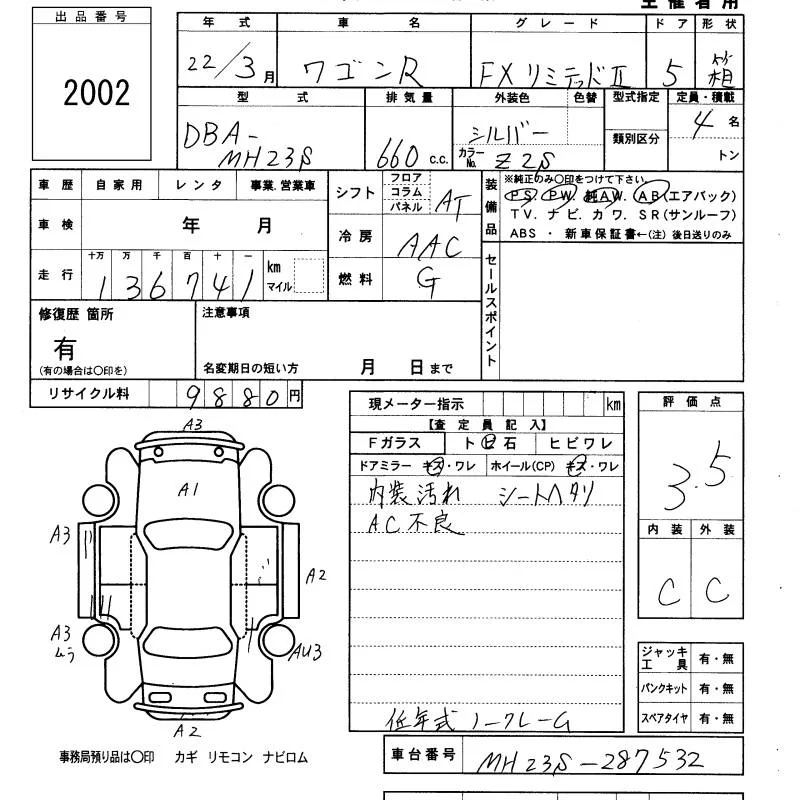 主催者用
出品番号
2002
年式 車名 グレード ドア 形状
22/3月 ワゴンR FXリミテッドII 5 箱
型式 排気量 外装色 色替 型式指定 定員・積載
DBA-
MH23S 660 c.c. シルバー カラーNo. Z2S 類別区分 4名
トン
車歴 自家用 レンタ 事業.営業車
車検 年 月
走行 十万 万 千 百 十 一
136741 km マイル
シフト フロア コラム パネル AT
冷房 AAC
燃料 G
装備品 ※純正のみ○印をつけて下さい。
PS. PW. 純AW. AB(エアバック)
TV. ナビ. カワ. SR(サンルーフ)
ABS ・ 新車保証書←(注) 後日送りのみ
セールスポイント
修復歴 箇所
有
(有の場合は○印を)
注意事項
名変期日の短い方 月 日まで
リサイクル料 9880円
現メーター指示 km
【査定員記入】
Fガラス トビ石 ヒビワレ
ドアミラー キズ・ワレ ホイール(CP) キズ・ワレ
内装汚れ シートヘタリ
AC不良
低年式ノークレーG
評価点
3.5
内装 外装
C C
ジャッキ工具 有・無
パンクキット 有・無
スペアタイヤ 有・無
A3
A1
A3
A2
A3
ムラ
AU3
A2
事務局預り品は○印 カギ リモコン ナビロム
車台番号 MH23S-287532